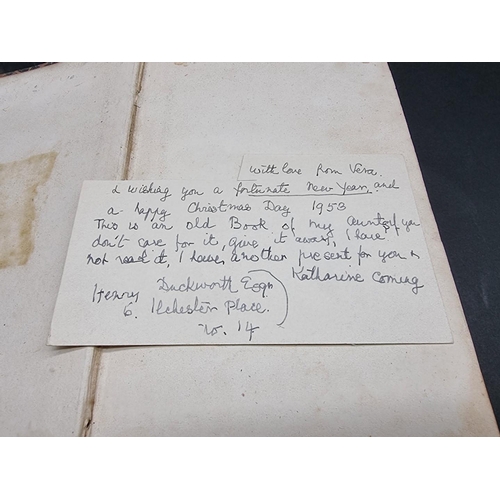 with love from Vera.
& wishing you a fortunate New Year, and
a happy Christmas Day 1953
This is an old Book of my Aunts if you
don't care for it, give it away, I have
not read it, I have another present for you &
Katharine coming
Henry Duckworth Esqr
6. Ilchester Place.
W. 14